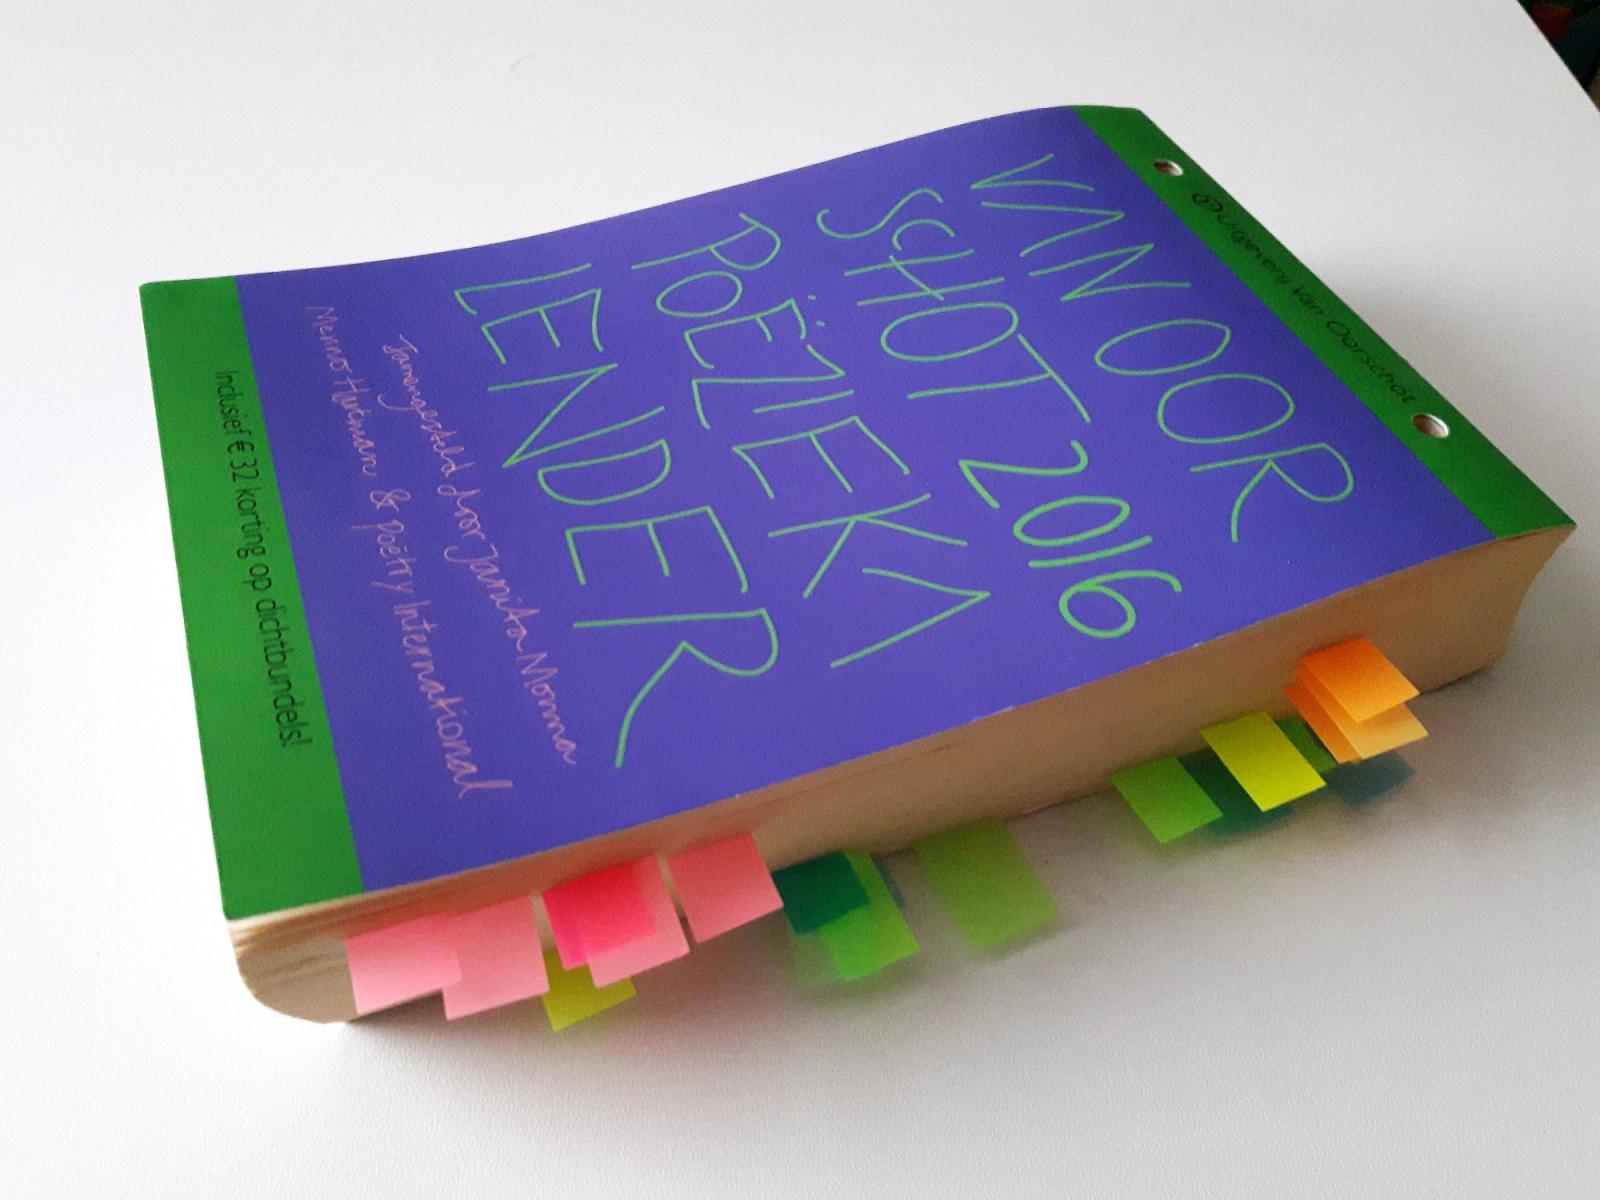 Uitgeverij Van Oorschot
VAN OOR
SCHOT 2016
POËZIEKA
LENDER
Samengesteld door Jamita Monna
Menno Hartman & Poëtry International
Inclusief € 32 korting op dichtbundels!